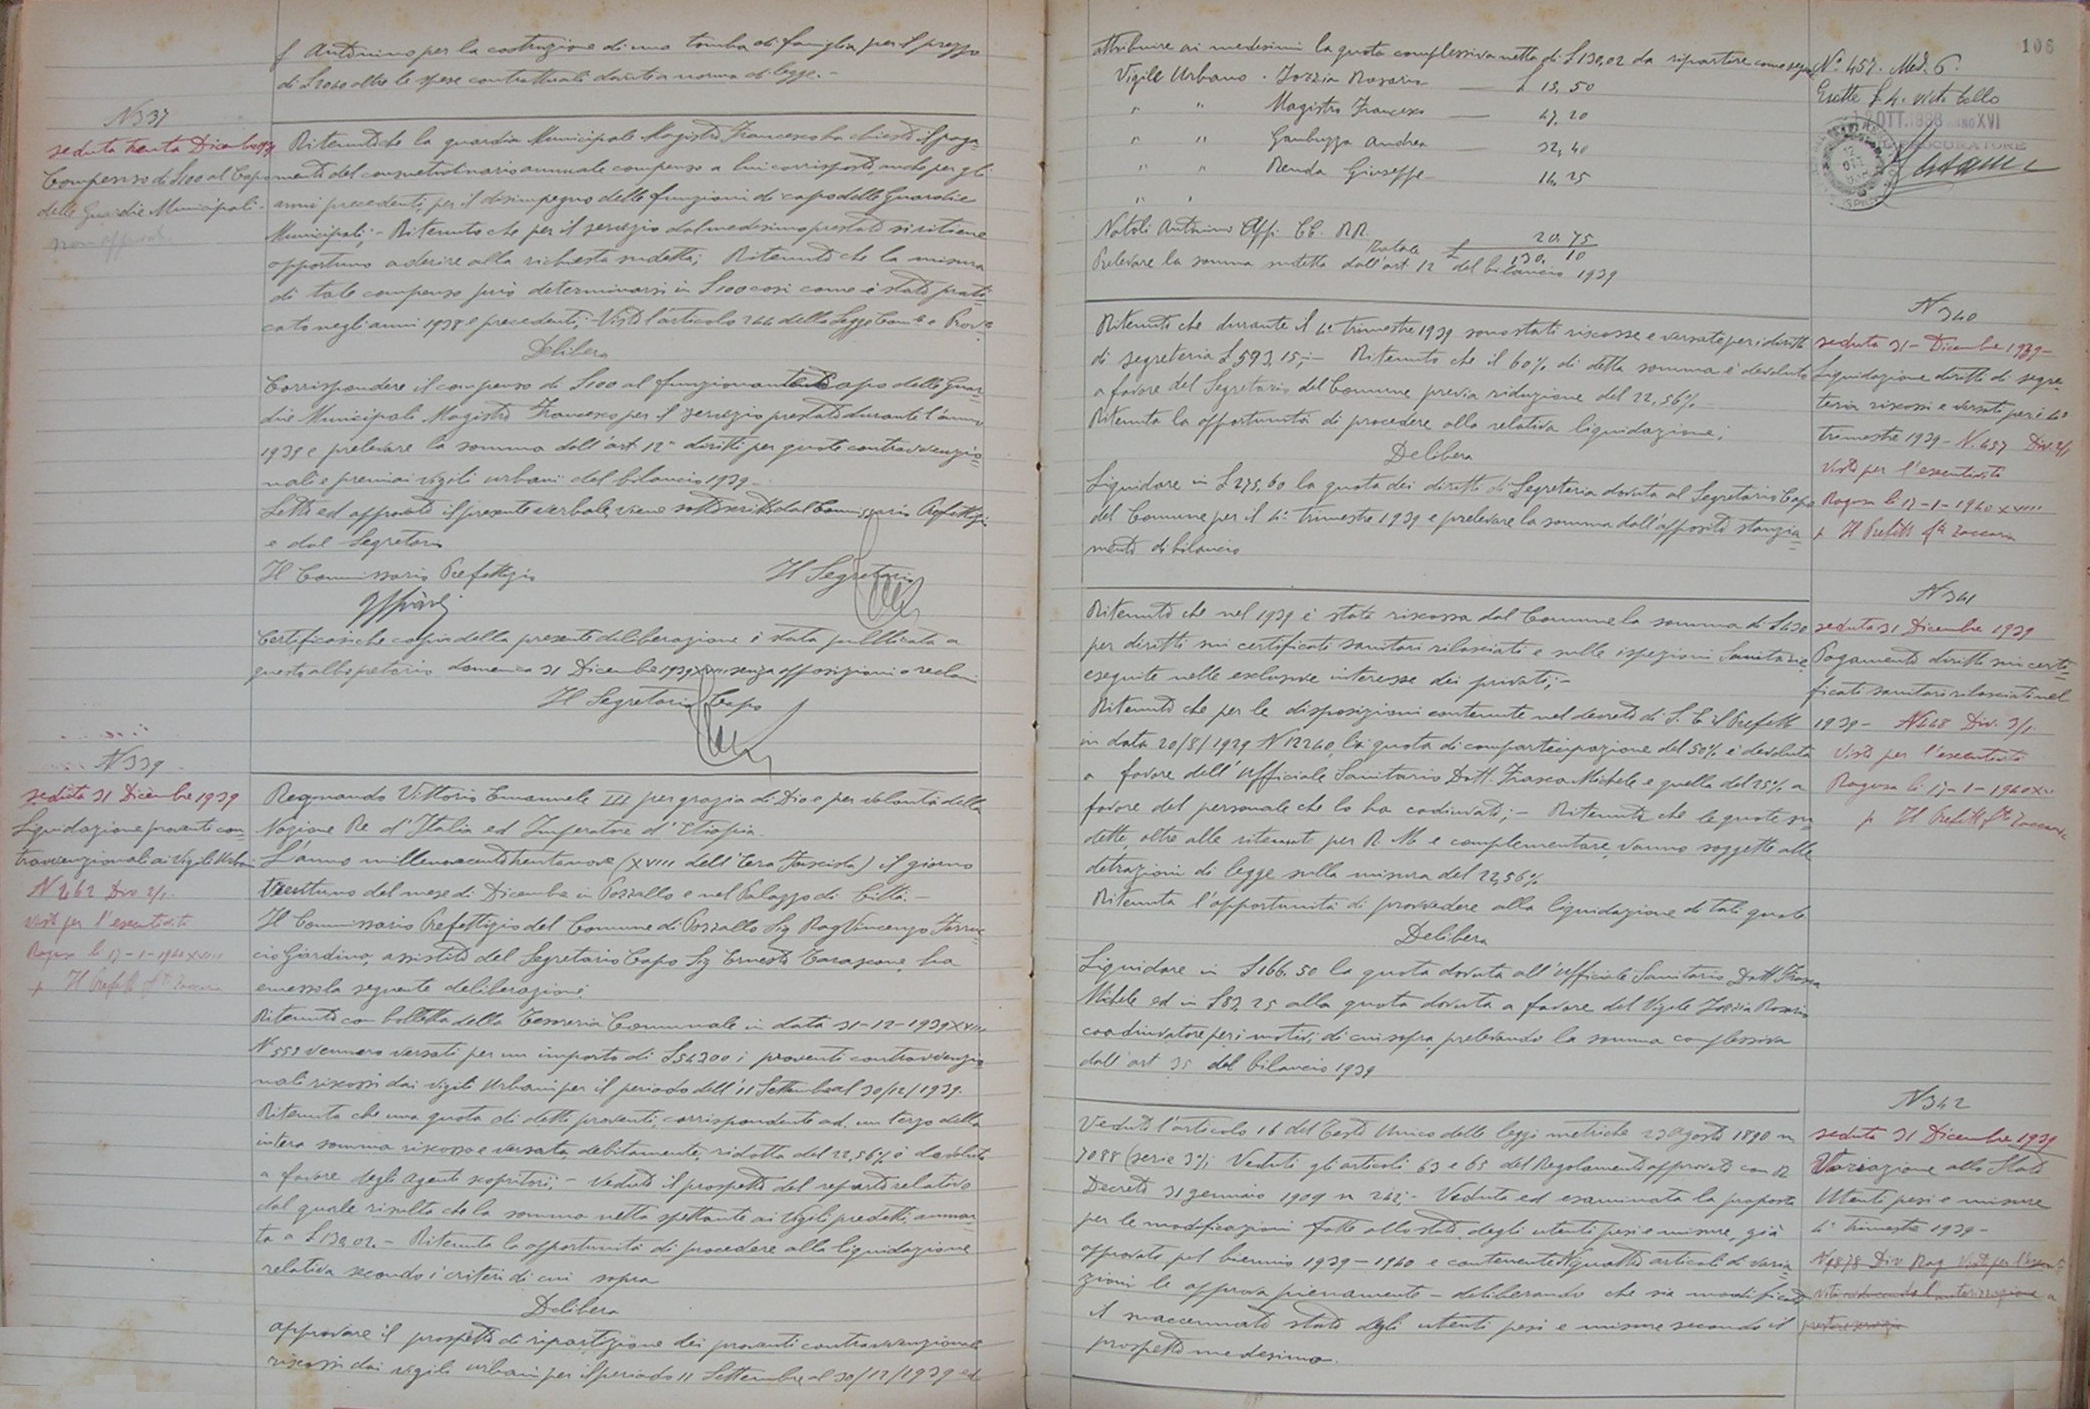 f. Antonino per la costruzione di una tomba di famiglia per il prezzo
di L 2040 oltre le spese contrattuali dovute a norma di legge. -
N 337
seduta trenta Dicembre
Compenso di L 100 al Capo
delle Guardie Municipali -
non approvata
Ritenuto che la guardia Municipale Magistro Francesco ha chiesto il paga=
mento del consuetudinario annuale compenso a lui corrisposto anche per gli
anni precedenti, per il disimpegno delle funzioni di capo delle Guardie
Municipali; - Ritenuto che per il servizio dal medesimo prestato si ritiene
opportuno aderire alla richiesta sudetta; Ritenuto che la misura
di tale compenso può determinarsi in L 100 così come è stato prati=
cato negli anni 1938 e precedenti; - Visto l'articolo 244 della Legge Com.le e Prov.le
Delibera
Corrispondere il compenso di L 100 al funzionante Capo delle Guar=
die Municipali Magistro Francesco per il servizio prestato durante l'anno
1939 e prelevare la somma dall'art. 12 " diritti per quote contravvenzio=
nali e premi ai vigili urbani " del bilancio 1939 -
Letto ed approvato il presente verbale, viene sottoscritto dal Commissario Prefettizio
e dal Segretario
Il Commissario Prefettizio Il Segretario
Certificasi che copia della presente deliberazione è stata pubblicata a
questo albo pretorio domenica 31 Dicembre 1939 XVIII senza opposizioni o reclami
Il Segretario Capo
N 339
seduta 31 Dicembre 1939
Liquidazione proventi con=
travvenzionali ai Vigili Urbani
N 462 Div 2/1
Visto per l'esecutività
Ragusa lì 17-1-1940 XVIII
p Il Prefetto f.to Zaccaria
Regnando Vittorio Emanuele III per grazia di Dio e per volontà della
Nazione Re d'Italia ed Imperatore d'Etiopia.
L'anno millenovecentotrentanove (XVIII dell'Era Fascista) il giorno
trentuno del mese di Dicembre in Pozzallo e nel Palazzo di Città. -
Il Commissario Prefettizio del Comune di Pozzallo Sig. Rag Vincenzo Ferruc=
cio Giardina, assistito del Segretario Capo Sig Ernesto Tarascone, ha
emesso la seguente deliberazione.
Ritenuto con bolletta della Tesoreria Comunale in data 31-12-1939 XVIII
N 553 vennero versati per un importo di L 542.00 i proventi contravvenzio=
nali riscossi dai vigili Urbani per il periodo dell'11 Settembre al 30/12/1939.
Ritenuta che una quota di detti proventi, corrispondente ad un terzo della
intera somma riscossa e versata, debitamente, ridotta del 22,56% è devoluta
a favore degli agenti scopritori; - Veduto il prospetto del reparto relativo
dal quale risulta che la somma netta spettante ai Vigili predetti, ammon=
ta a L 130,02. - Ritenuta la opportunità di procedere alla liquidazione
relativa secondo i criteri di cui sopra
Delibera
approvare il prospetto di ripartizione dei proventi contravvenzionali
riscossi dai vigili urbani per il periodo 11 Settembre al 30/12/1939 ed
106
attribuire ai medesimi la quota complessiva netta di L 130,02 da ripartire come segue
Vigile Urbano . Iozzia Rosario — L 13,50
" " Magistro Francesco — 47,20
" " Gambuzza Andrea — 32,40
" " Renda Giuseppe — 16,25
" "
Natoli Antonino App. CC. RR. 20,75
Totale L 130,10
Prelevare la somma sudetta dall'art 12 del bilancio 1939
N° 457. Mod. 6.
Esatte L 4. visto bollo
OTT. 1938 ANNO XVI
PROCURATORE
Ritenuto che durante il 4° trimestre 1939 sono stati riscosse e versate per i diritti
di segreteria L 593,15; - Ritenuto che il 60% di detta somma è devoluta
a favore del Segretario del Comune previa riduzione del 22,56% -
Ritenuta la opportunità di procedere alla relativa liquidazione;
Delibera
Liquidare in L 275,60 la quota dei diritti di Segreteria dovuta al Segretario Capo
del Comune per il 4° trimestre 1939 e prelevare la somma dall'apposito stanzia=
mento di bilancio
N 340
seduta 31 - Dicembre 1939 -
Liquidazione diritti di segre=
teria riscossi e versati per il 4°
trimestre 1939 - N. 457 Div. 2/1
Visto per l'esecutività
Ragusa lì 17-1-1940 XVIII
p Il Prefetto f.to Zaccaria
Ritenuto che nel 1939 è stata riscossa dal Comune la somma di L 430
per diritti sui certificati sanitari rilasciati e sulle ispezioni Sanitarie
eseguite nello esclusivo interesse dei privati; -
Ritenuto che per le disposizioni contenute nel decreto di S. E. il Prefetto
in data 20/8/1929 N 12240, la quota di compartecipazione del 50% è devoluta
a favore dell'Ufficiale Sanitario Dott. Frasca Michele e quella del 25% a
favore del personale che lo ha coadiuvato; - Ritenuta che le quote su=
dette, oltre alle ritenute per R. M. e complementare, vanno soggette alle
detrazioni di legge nella misura del 22,56%
Ritenuta l'opportunità di provvedere alla liquidazione di tali quote
Delibera
Liquidare in L 166.50 la quota dovuta all'Ufficiale Sanitario Dott Frasca
Michele ed in L 83,25 alla quota dovuta a favore del Vigile Iozzia Rosario
coadiuvatore per i motivi di cui sopra, prelevando la somma complessiva
dall'art 35 del bilancio 1939
N 341
seduta 31 Dicembre 1939
Pagamento diritti sui certi=
ficati sanitari rilasciati nel
1939 - N 448 Div. 3/1.
Visto per l'esecutività
Ragusa lì 17-1-1940 XVIII
p Il Prefetto f.to Zaccaria
Veduto l'articolo 16 del Testo Unico delle leggi metriche 23 Agosto 1890 n
7088 (serie 3°); Veduti gli articoli 63 e 65 del Regolamento approvato con R.
Decreto 31 gennaio 1909 n 242; - Veduta ed esaminata la proposta
per le modificazioni fatte allo stato degli utenti pesi e misure, già
approvato pel biennio 1939-1940 e contenente N quattro articoli di varia=
zioni le approva pienamente - deliberando che sia modificato
il suaccennato stato degli utenti pesi e misure secondo il
prospetto medesimo.
N 342
seduta 31 Dicembre 1939
Variazione allo Stato
Utenti pesi e misure
4° trimestre 1939 -